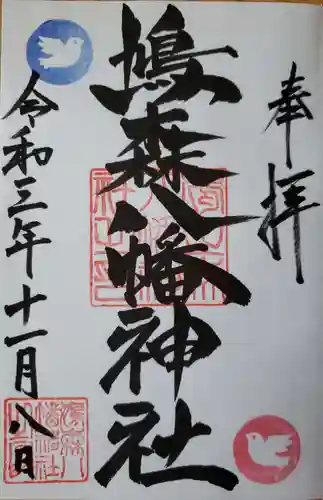 奉拝
鳩森八幡神社
令和三年十一月八日